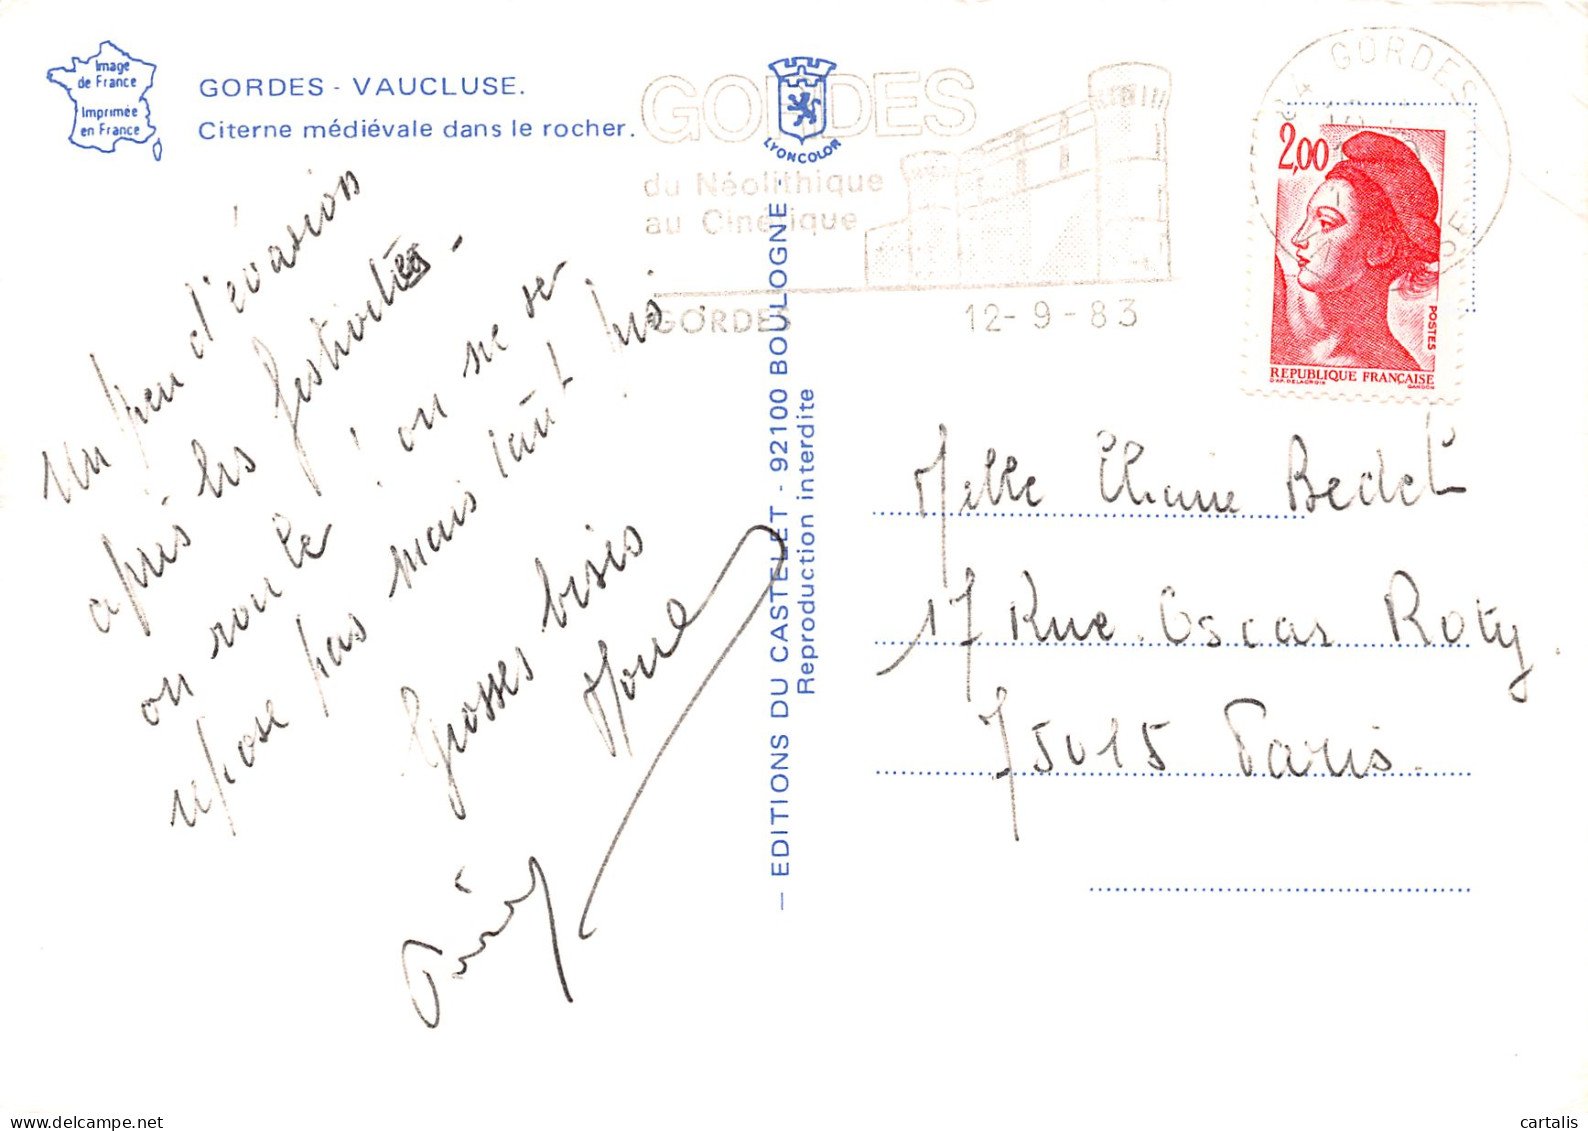 Image
de France
Imprimée
en France
GORDES - VAUCLUSE.
Citerne médiévale dans le rocher.
LYONCOLOR
GORDES
du Néolithique
au Cinétique
GORDES
12-9-83
84 GORDES
2,00
POSTES
REPUBLIQUE FRANÇAISE
D'AP. DELACROIX
GANDON
Un peu d'évasion
après les festivités -
on roule ! on ne se
repose pas mais tant
Grosses bises
— EDITIONS DU CASTELET - 92100 BOULOGNE -
Reproduction interdite
Melle Eliane Bedet
17 Rue Oscar Roty
75015 Paris.
cartalis
delcampe.net